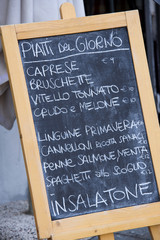 PIATTI DEL GIORNO
CAPRESE
BRUSCHETTE
VITELLO TONNATO
CRUDO E MELONE
LINGUINE PRIMAVERA
CANNELLONI RICOTTA SPINACI
PENNE SALMONE MENTA
SPAGHETTI SCOGLIO
INSALATONE